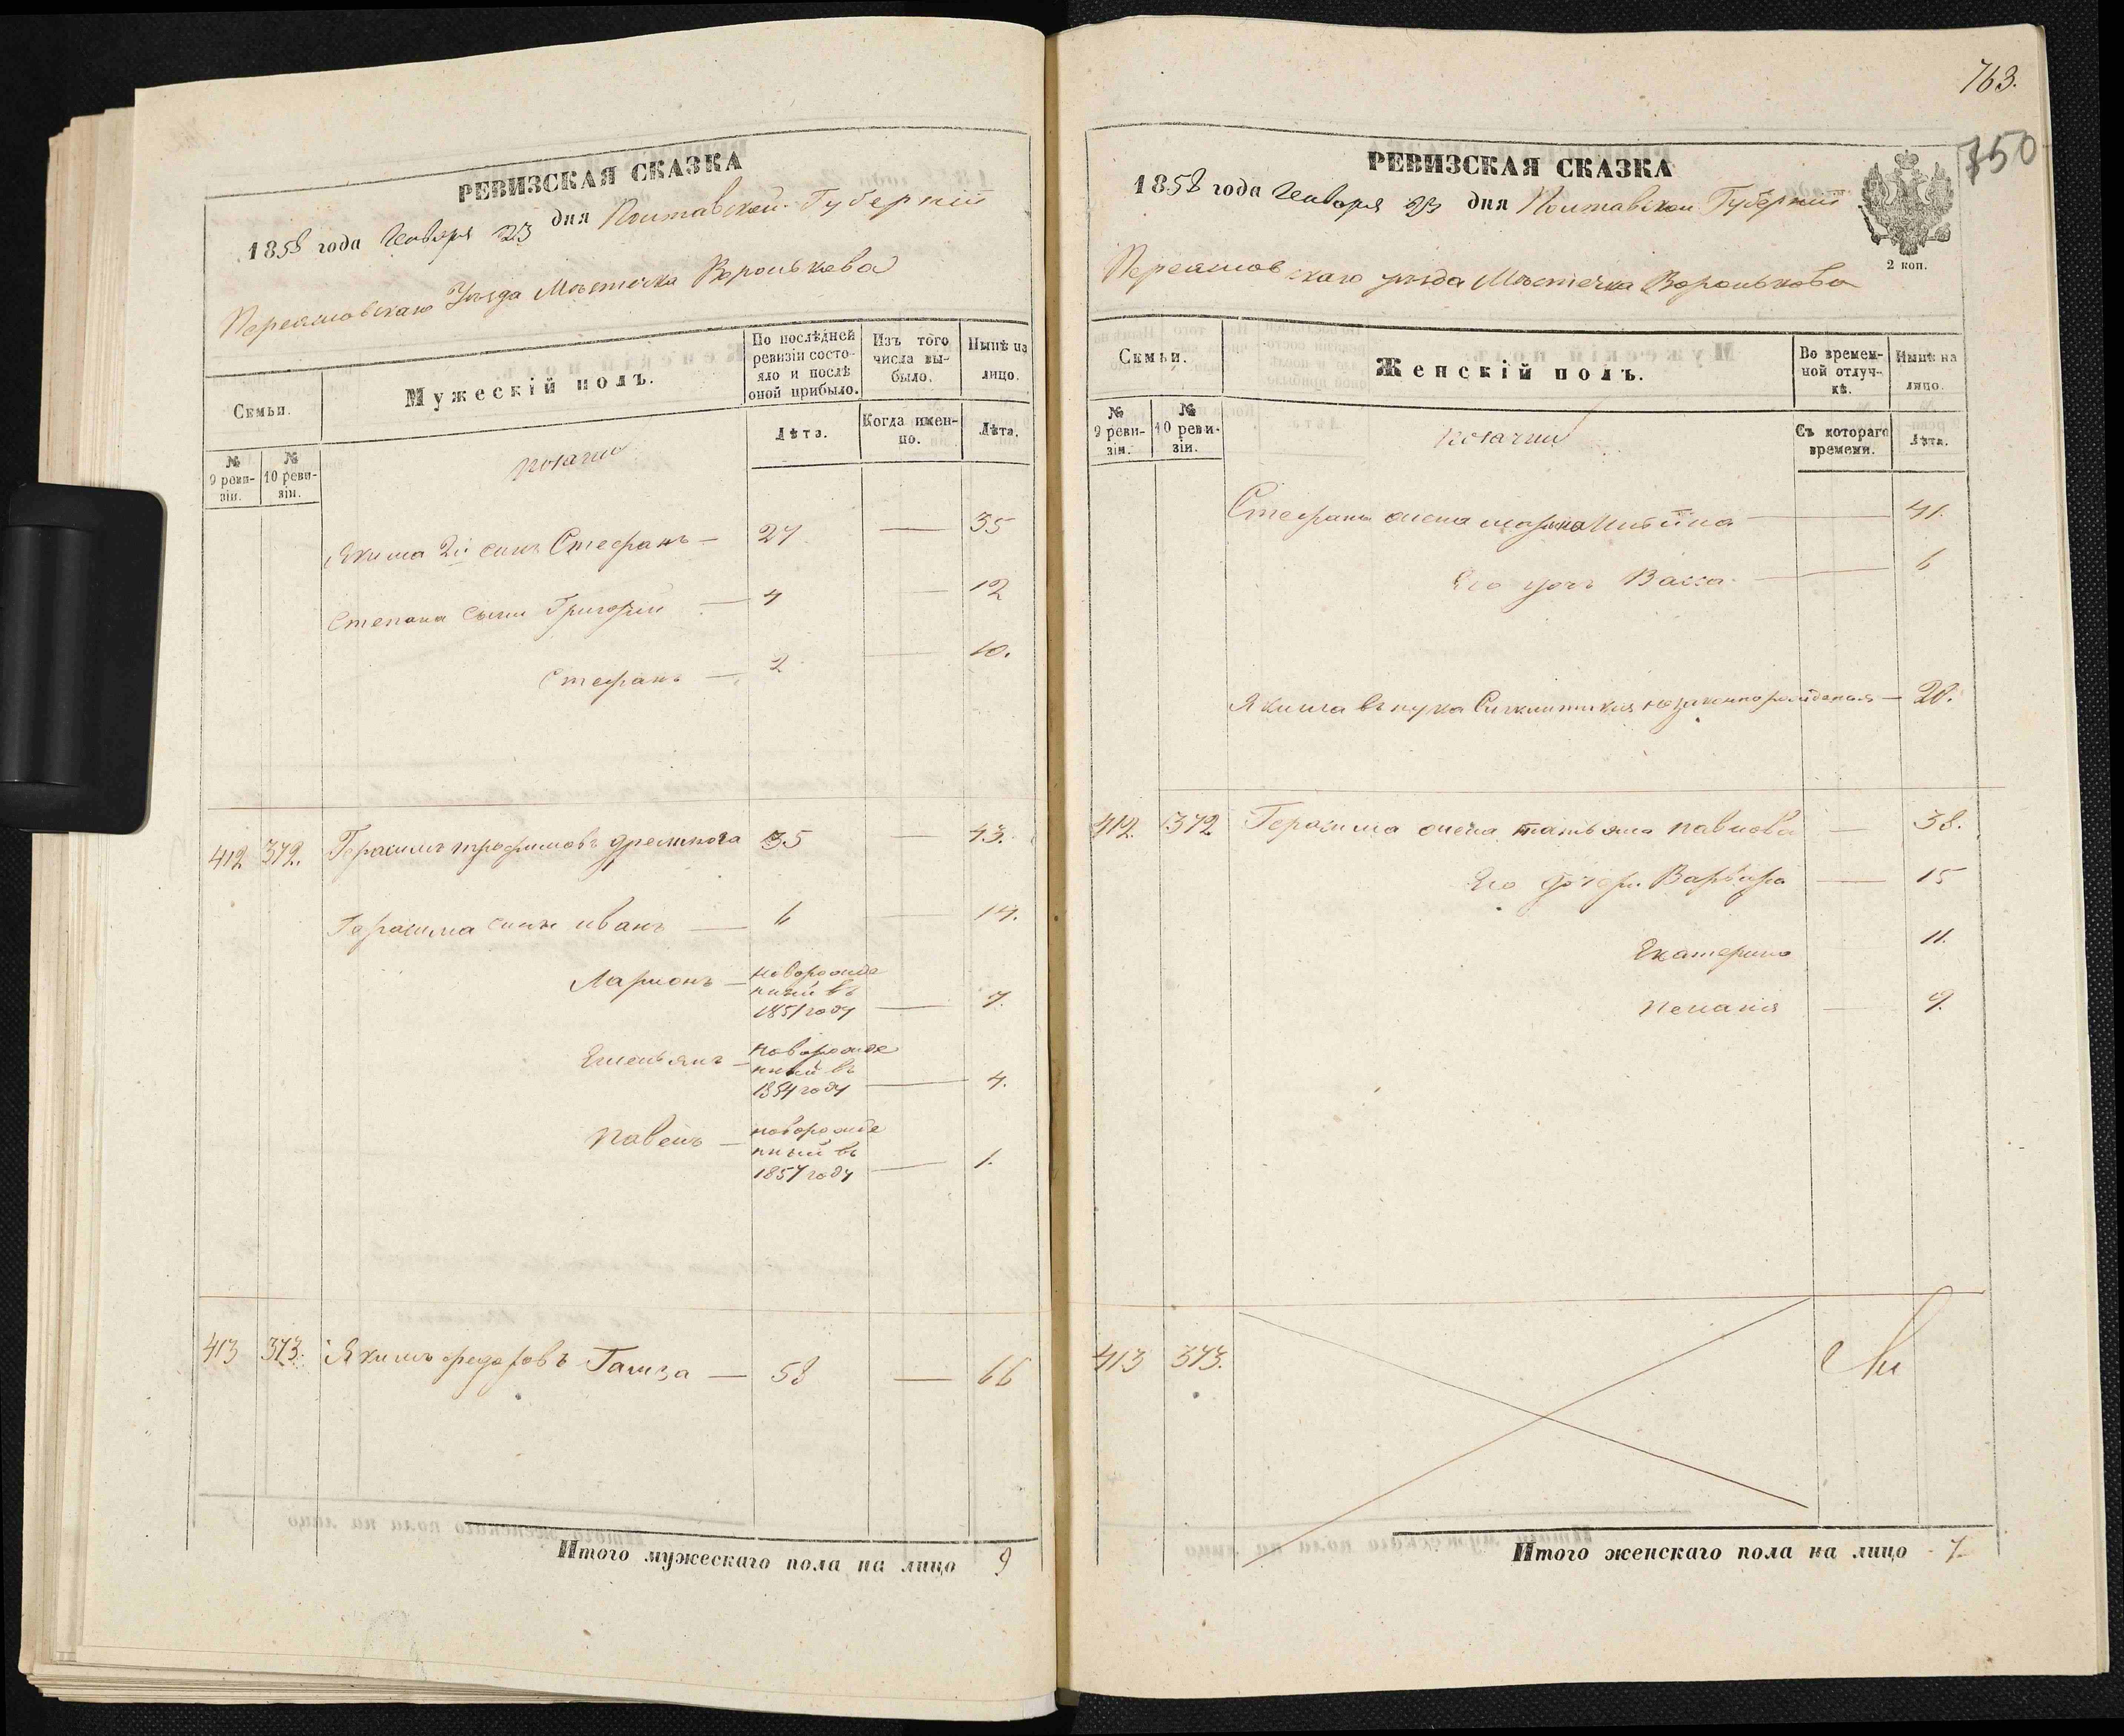 РЕВИЗСКАЯ СКАЗКА
1858 года Генваря 23 дня Полтавской Губерніи
Переяславскаго Уезда Местечка Воронькова
Семьи.
Мужескій полъ.
По послѣдней ревизіи состояло и послѣ оной прибыло.
Изъ того числа выбыло.
Нынѣ на лицо.
№ 9 ревизіи.
№ 10 ревизіи.
Козачій
Лѣта.
Когда именно.
Лѣта.
Якима 2й сынъ Стефанъ — 27 — 35
Степана сыни Григорій — 4 — 12
Стефанъ — 2 — 10.
412 372. Герасимъ трофимовъ 35 — 43.
Герасима сини иванъ — 6 — 14.
Ларионъ — новорожде
нный въ
1851 году — 7.
Емельянъ — новорожде
нный въ
1854 году — 4.
Павелъ — новорожде
нный въ
1857 году — 1.
413 373. Якимъ федоровъ — 58 — 66
Итого мужескаго пола на лицо 9
763.
750
РЕВИЗСКАЯ СКАЗКА
1858 года Генваря 23 дня Полтавской Губерніи
2 коп.
Переяславскаго уезда Местечка Воронькова
Семьи.
Женскій полъ.
Во временной отлучкѣ.
Нынѣ на лицо.
№ 9 ревизіи.
№ 10 ревизіи.
Козачій
Съ котораго времени.
Лѣта.
Стефана жена — 41.
Его дочь Васса — 6
Якима внука незаконнорожденая — 20.
412. 372 Герасима жена татьяна павлова — 38.
Его дочери Варвара — 15
Екатерина 11.
Пелагия — 9.
413 373.
Итого женскаго пола на лицо 7